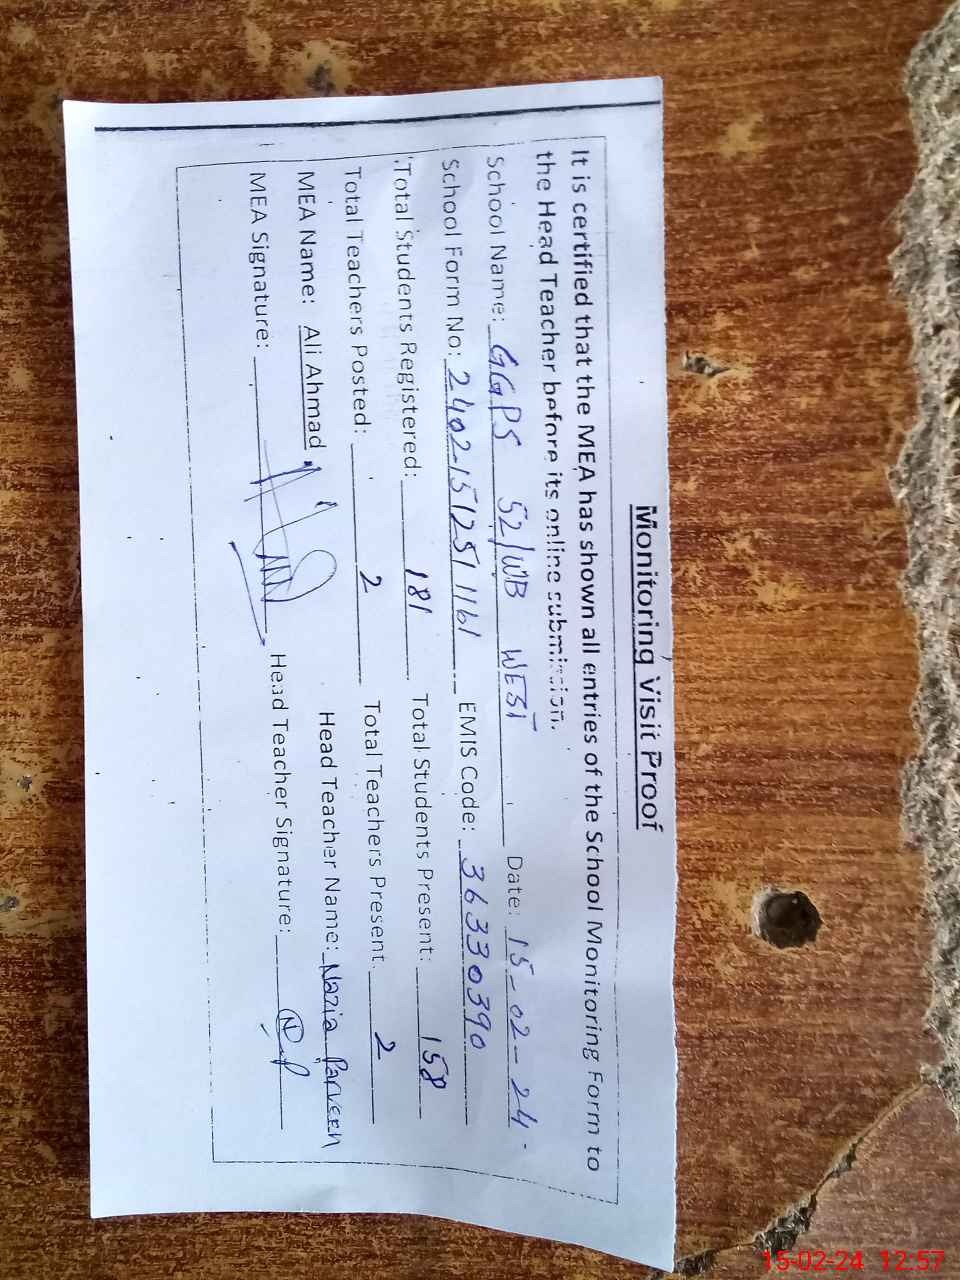 Monitoring Visit Proof
It is certified that the MEA has shown all entries of the School Monitoring Form to
the Head Teacher before its online submission.
School Name: GGPS 52/WB WEST Date: 15-02-24
School Form No: 2402-1512511161 EMIS Code: 36330390
Total Students Registered: 181 Total Students Present: 158
Total Teachers Posted: 2 Total Teachers Present 2
MEA Name: Ali Ahmad Head Teacher Name: Nazia Parveen
MEA Signature: Head Teacher Signature:
15-02-24 12:57